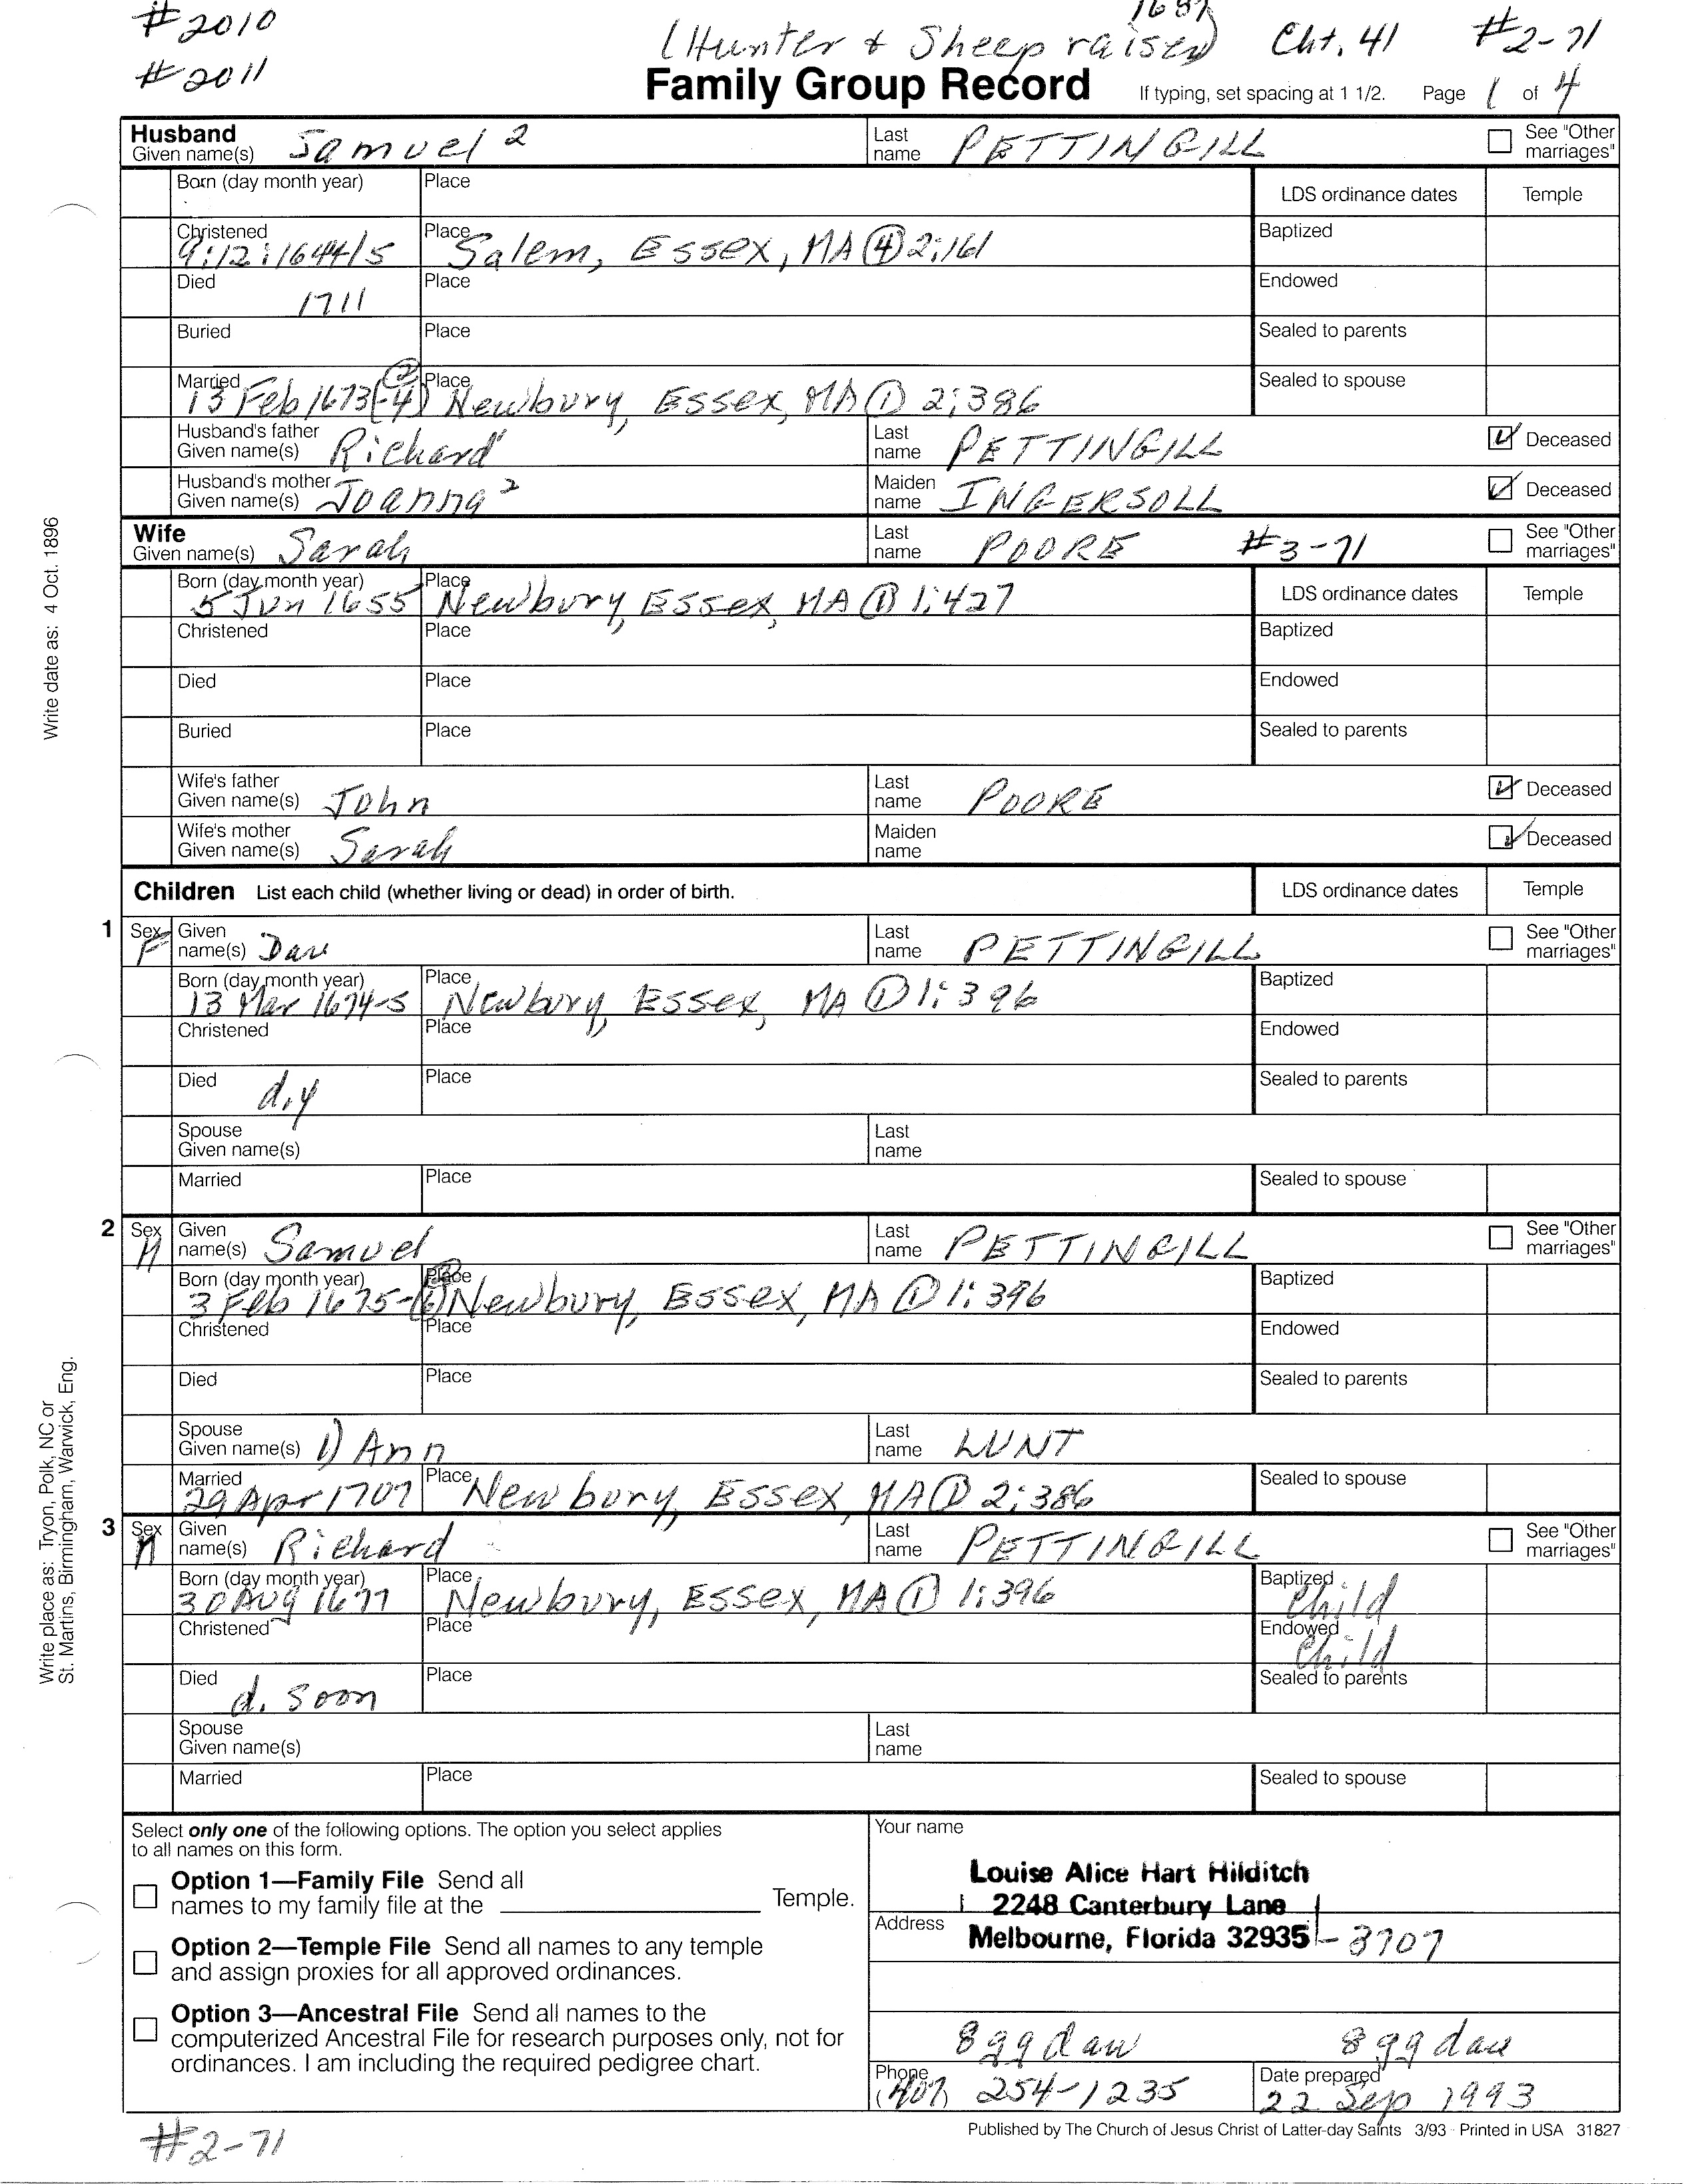 #2010
#2011
1687
(Hunter & Sheep raiser) Cht. 41 #2-71
Family Group Record If typing, set spacing at 1 1/2. Page 1 of 4
Husband
Given name(s) Samuel 2 Last name PETTINGILL See "Other marriages"
Born (day month year) Place LDS ordinance dates Temple
Christened 9:12:1644/5 Place Salem, Essex, MA ④ 2:161 Baptized
Died 1711 Place Endowed
Buried Place Sealed to parents
Married 13 Feb 1673(-4) ② Place Newbury, Essex, MA ① 2:386 Sealed to spouse
Husband's father Given name(s) Richard Last name PETTINGILL Deceased
Husband's mother Given name(s) Joanna 2 Maiden name INGERSOLL Deceased
Wife
Given name(s) Sarah Last name POORE #3-71 See "Other marriages"
Born (day month year) 5 Jun 1655 Place Newbury, Essex, MA ① 1:427 LDS ordinance dates Temple
Christened Place Baptized
Died Place Endowed
Buried Place Sealed to parents
Wife's father Given name(s) John Last name POORE Deceased
Wife's mother Given name(s) Sarah Maiden name Deceased
Children List each child (whether living or dead) in order of birth. LDS ordinance dates Temple
1 Sex F Given name(s) Dau Last name PETTINGILL See "Other marriages"
Born (day month year) 13 Mar 1674-5 Place Newbury, Essex, MA ① 1:396 Baptized
Christened Place Endowed
Died d.y Place Sealed to parents
Spouse Given name(s) Last name
Married Place Sealed to spouse
2 Sex M Given name(s) Samuel Last name PETTINGILL See "Other marriages"
Born (day month year) 3 Feb 1675-(6) Place Newbury, Essex, MA ① 1:396 Baptized
Christened Place Endowed
Died Place Sealed to parents
Spouse Given name(s) 1) Ann Last name LUNT
Married 29 Apr 1707 Place Newbury, Essex, MA ① 2:386 Sealed to spouse
3 Sex M Given name(s) Richard Last name PETTINGILL See "Other marriages"
Born (day month year) 30 Aug 1677 Place Newbury, Essex, MA ① 1:396 Baptized Child
Christened Place Endowed Child
Died d. soon Place Sealed to parents
Spouse Given name(s) Last name
Married Place Sealed to spouse
Select only one of the following options. The option you select applies
to all names on this form.
Option 1—Family File Send all
names to my family file at the Temple.
Option 2—Temple File Send all names to any temple
and assign proxies for all approved ordinances.
Option 3—Ancestral File Send all names to the
computerized Ancestral File for research purposes only, not for
ordinances. I am including the required pedigree chart.
Your name
Louise Alice Hart Hilditch
2248 Canterbury Lane
Address
Melbourne, Florida 32935-3707
8 gg dau 8 gg dau
Phone (407) 254-1235 Date prepared 22 Sep 1993
Published by The Church of Jesus Christ of Latter-day Saints 3/93 Printed in USA 31827
#2-71
Write date as: 4 Oct. 1896
Write place as: Tryon, Polk, NC or
St. Martins, Birmingham, Warwick, Eng.